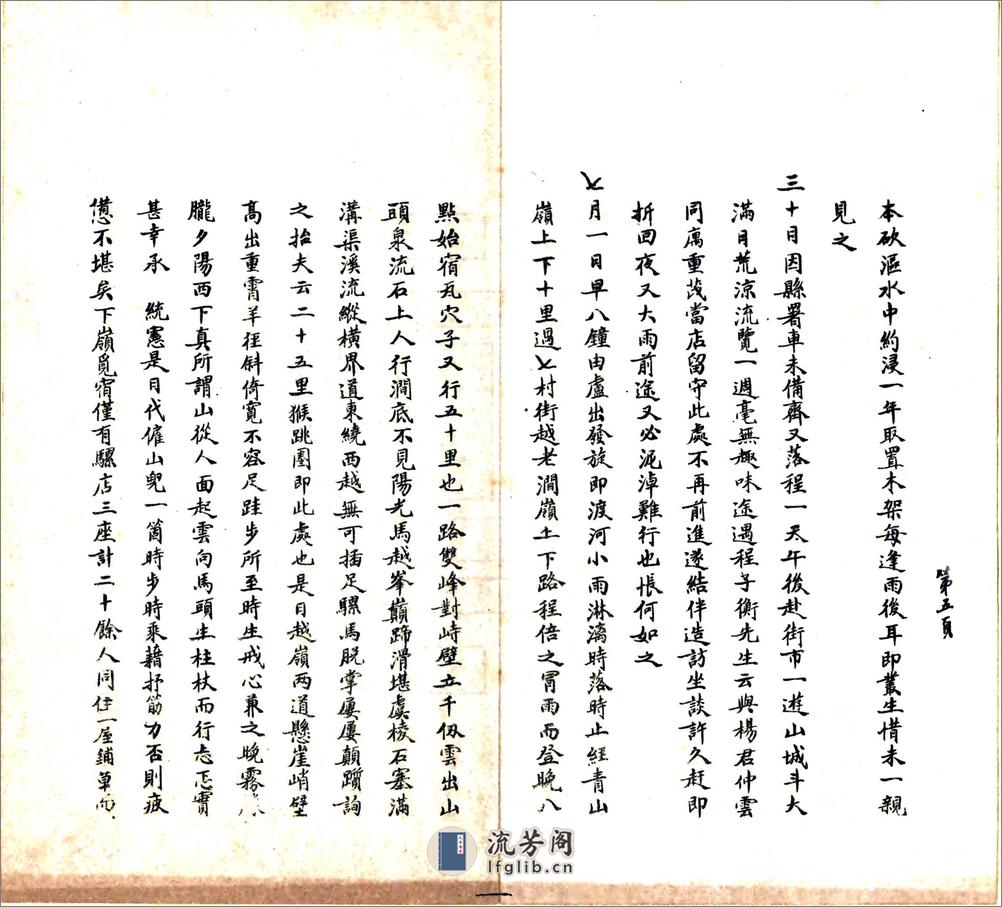 第五頁
本砍漚水中約浸一年取置木架每逢雨後耳即叢生惜未一親
見之
三十日因縣署車未備齊又落程一天午後赴街市一遊山城斗大
滿目荒涼流覽一週毫無趣味途遇程子衡先生云與楊君仲雲
同寓重茂當店留守此處不再前進遂結伴造訪坐談許久赶即
折回夜又大雨前途又必泥淖難行也悵何如之
七月一日早八鐘由盧出發旋即渡河小雨淋漓時落時止經青山
嶺上下十里過七村街越老澗嶺上下路程倍之冒雨而登晚八
點始宿瓦穴子又行五十里也一路雙峰對峙壁立千仭雲出山
頭泉流石上人行澗底不見陽光馬越峯巔蹄滑堪虞棱石塞滿
溝渠溪流縱橫界道東繞西越無可插足騾馬脫掌屢屢顛躓詢
之抬夫云二十五里猴跳圈即此處也是日越嶺兩道懸崖峭壁
高出重霄羊徑斜倚寬不容足跬步所至時生戒心兼之晚霧
朧夕陽西下真所謂山從人面起雲向馬頭生柱杖而行忐忑實
甚幸承 統憲是日代僱山兜一箇時步時乘藉抒筋力否則疲
憊不堪矣下嶺覓宿僅有騾店三座計二十餘人同住一屋鋪草而
流芳阁
lfglib.cn